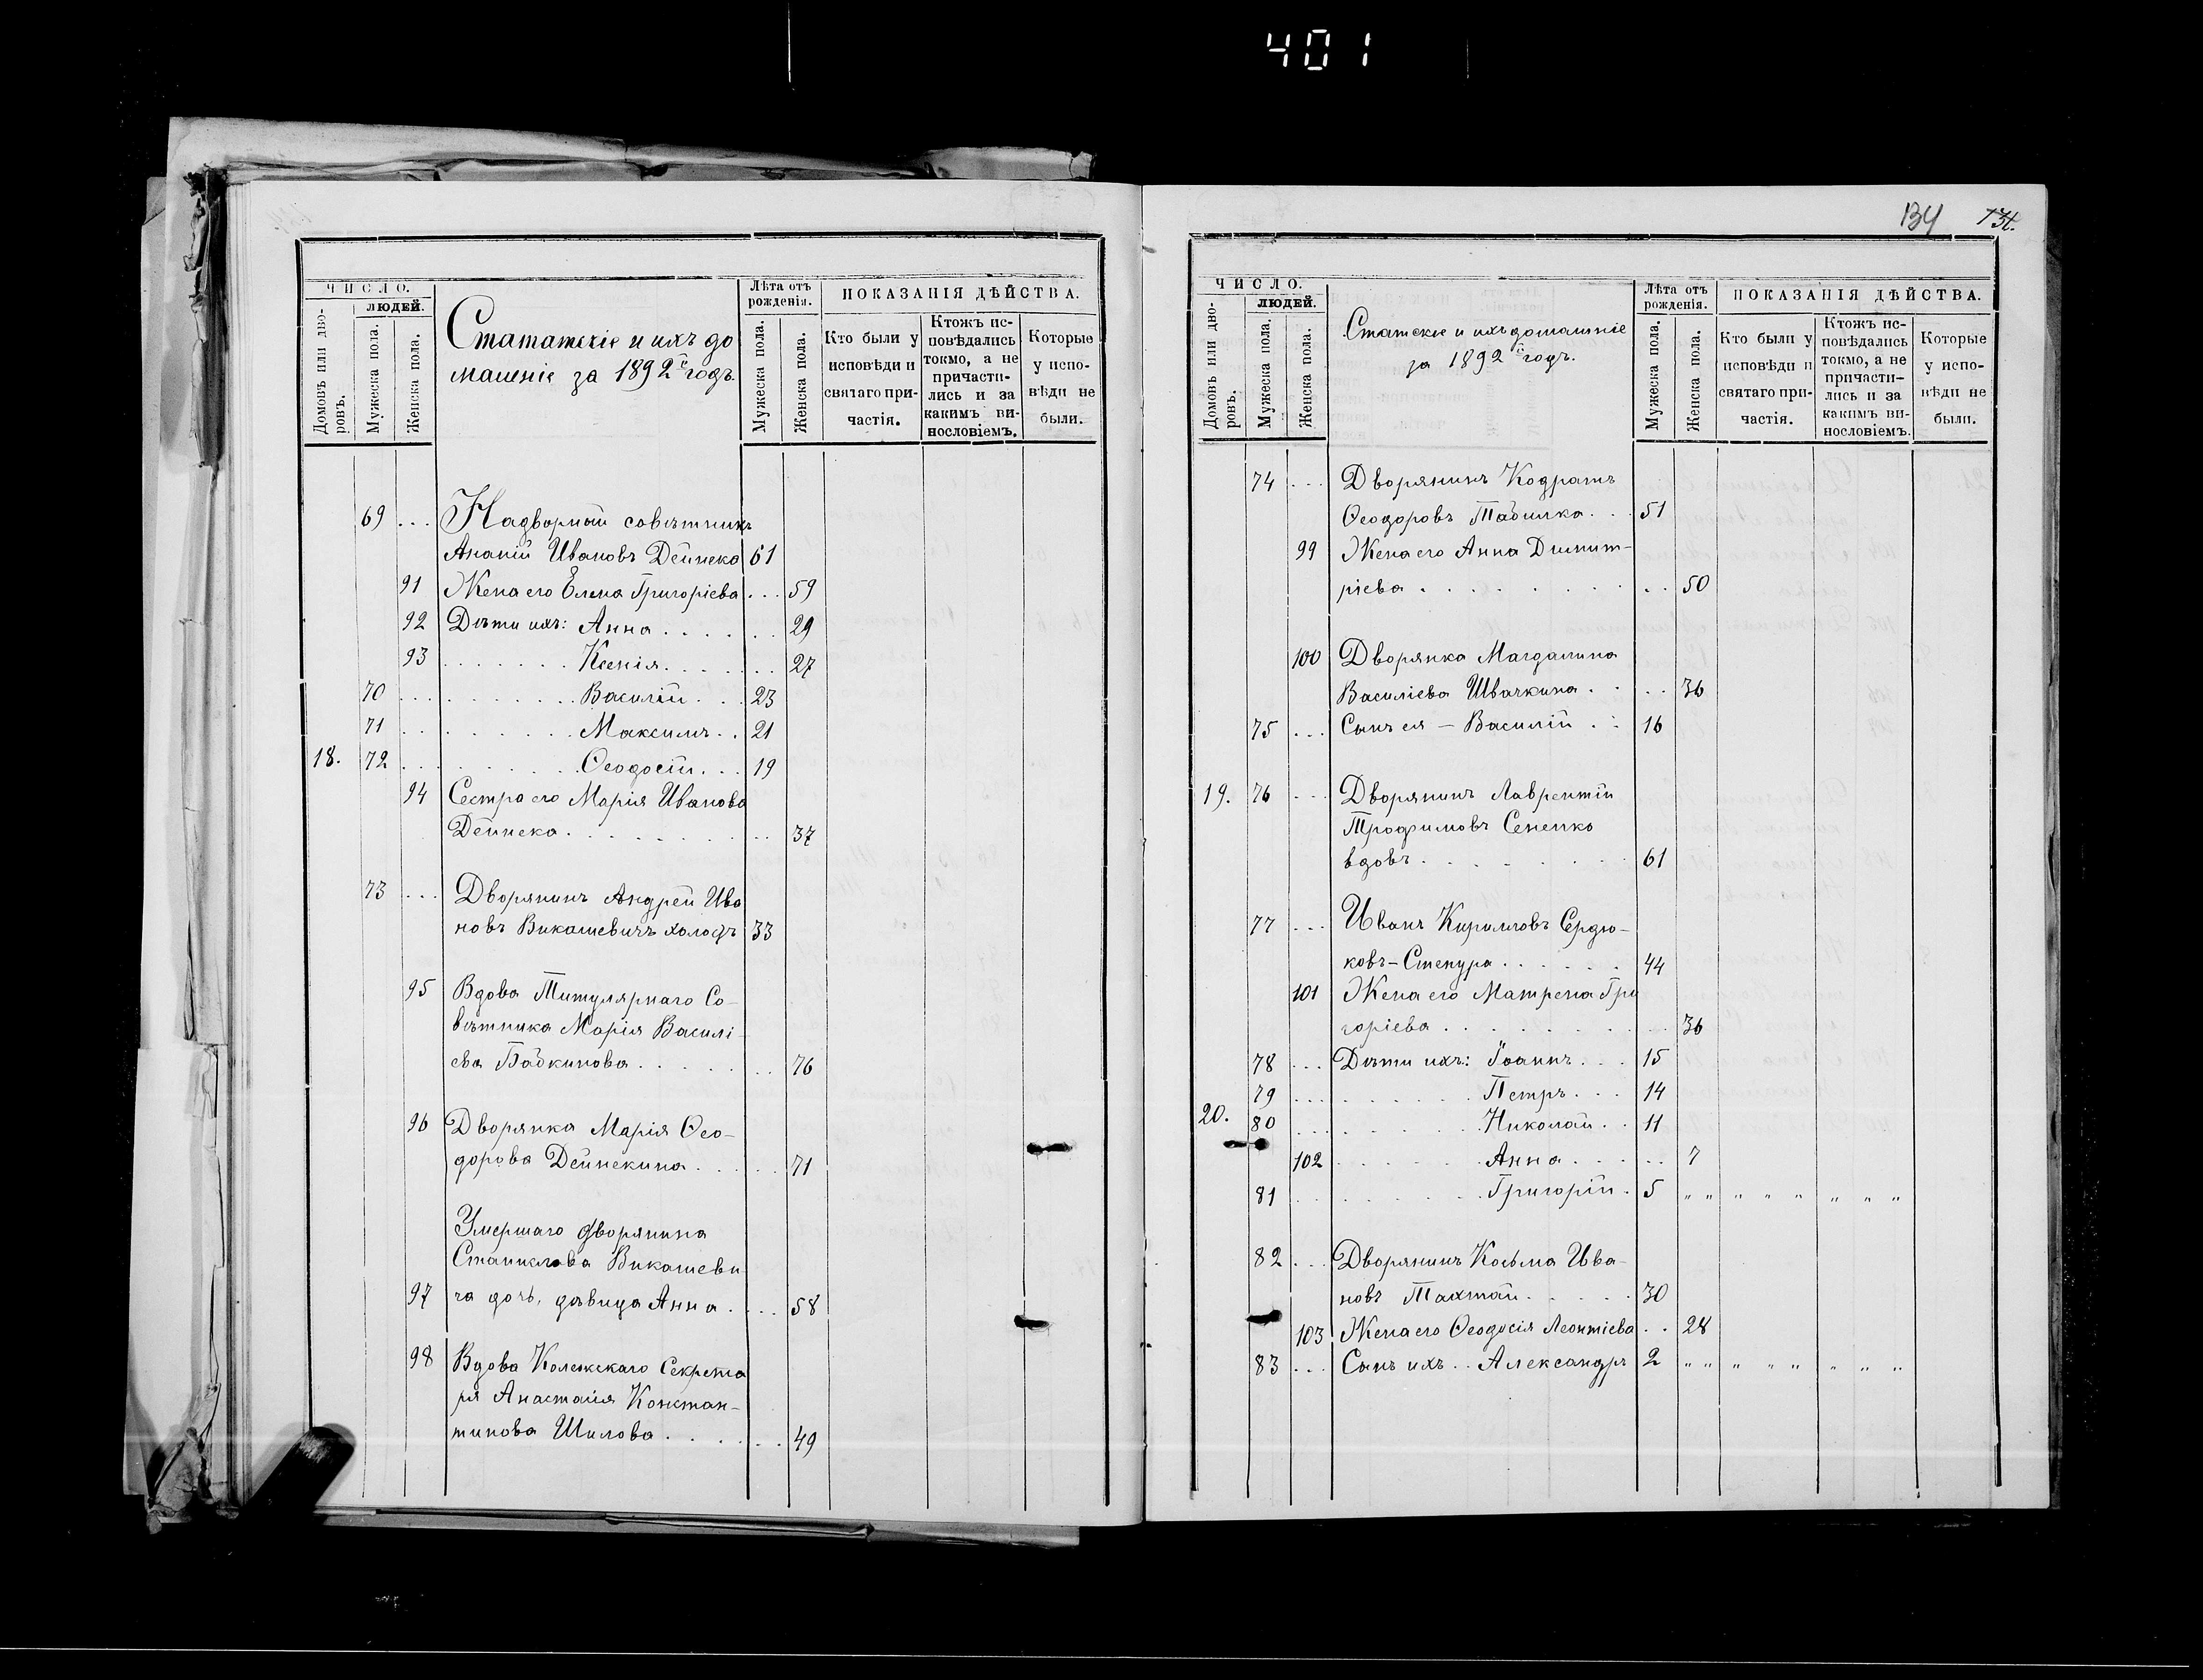 401
ЧИСЛО.
людей.
Домовъ или дворовъ.
Мужеска пола.
Женска пола.
Стататскіе и ихъ до
машніе за 1892й годъ.
Лѣта отъ рожденія.
Мужеска пола.
Женска пола.
ПОКАЗАНІЯ ДѢЙСТВА.
Кто были у исповѣди и святаго причастія.
Ктожъ исповѣдались токмо, а не причастились и за какимъ винословіемъ.
Которые у исповѣди не были.
69 ... Надворный совѣтникъ
Ананій Ивановъ Дейнека 61
91 Жена его Елена Григоріева ... 59
92 Дѣти ихъ: Анна ..... 29
93 ....... Ксенія ..... 27
70 ......... Василій ... 23
71 ......... Максимъ .. 21
18. 72 ......... Ѳеодосій ... 19
94 Сестра его Марія Иванова
Дейнека ......... 37
73 ... Дворянинъ Андрей Ива
новъ Викашевичъ холостъ 33
95 Вдова Титулярнаго Со-
вѣтника Марія Василі-
ева Бабкинова ....... 76
96 Дворянка Марія Ѳео-
дорова Дейнекина ..... 71
Умершаго дворянина
Станислава Викашеви
97 ча дочь, дѣвица Анна .... 58
98 Вдова Колежскаго Секрета
ря Анастасія Констан-
тинова Шилова ....... 49
134 134.
ЧИСЛО.
людей.
Домовъ или дворовъ.
Мужеска пола.
Женска пола.
Статскіе и ихъ домашніе
за 1892й годъ.
Лѣта отъ рожденія.
Мужеска пола.
Женска пола.
ПОКАЗАНІЯ ДѢЙСТВА.
Кто были у исповѣди и святаго причастія.
Ктожъ исповѣдались токмо, а не причастились и за какимъ винословіемъ.
Которые у исповѣди не были.
74 ... Дворянинъ Кодратъ
Ѳеодоровъ Табилка ... 51
99 Жена его Анна Димит-
ріева .......... 50
100 Дворянка Магдалина
Василіева Швачкина .... 36
75 ... Сынъ ея - Василій .. 16
19. 76 ... Дворянинъ Лаврентій
Трофимовъ Сененко
вдовъ ........ 61
77 ... Иванъ Кириловъ Сердю-
ковъ-Стенура ...... 44
101 Жена его Матрена Гри
горіева ......... 36
78 ... Дѣти ихъ: Іоаннъ ... 15
79 ......... Петръ ... 14
20. 80 ......... Николай .. 11
102 ....... Анна ..... 7
81 ......... Григорій . 5 " " " " " " " "
82 ... Дворянинъ Косьма Ива-
новъ Тахтай ..... 30
103 Жена его Ѳеодосія Леонтіева .. 28
83 ... Сынъ ихъ .. Александръ 2 " " " " " " " "